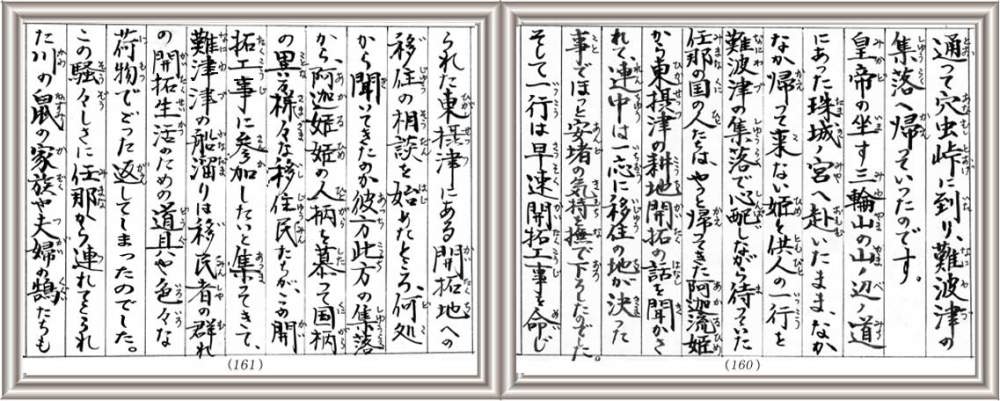 通って穴虫峠に到り、難波津の
集落へ帰っていったのです。
皇帝の坐す三輪山の山ノ辺ノ道
にあった珠城ノ宮へ赴いたまま、なか
なか帰って来ない姫と供人の一行を
難波津の集落で心配しながら待っていた
任那の国の人たちは、やっと帰ってきた阿迦流姫
から東摂津の耕地開拓の話を聞かさ
れて、連中は一応に移住の地が決った
事でほっと安堵の気持を撫で下ろしたのでした。
そして一行は早速開拓工事を命じ
(160)
られた東摂津にある開拓地への
移住の相談を始めたところ、何処
から聞いてきたのか彼方此方の集落
から、阿迦姫姫の人柄を慕って国柄
の異る様々な移住民たちが、この開
拓工事に参加したいと集ってきて、
難津津の船溜りは移民者の群れ
の開拓生活のための道具や色々な
荷物でごった返してしまったのでした。
この騒々しさに任那から連れてこられ
た川の鼠の家族や夫婦の鵠たちも
(161)